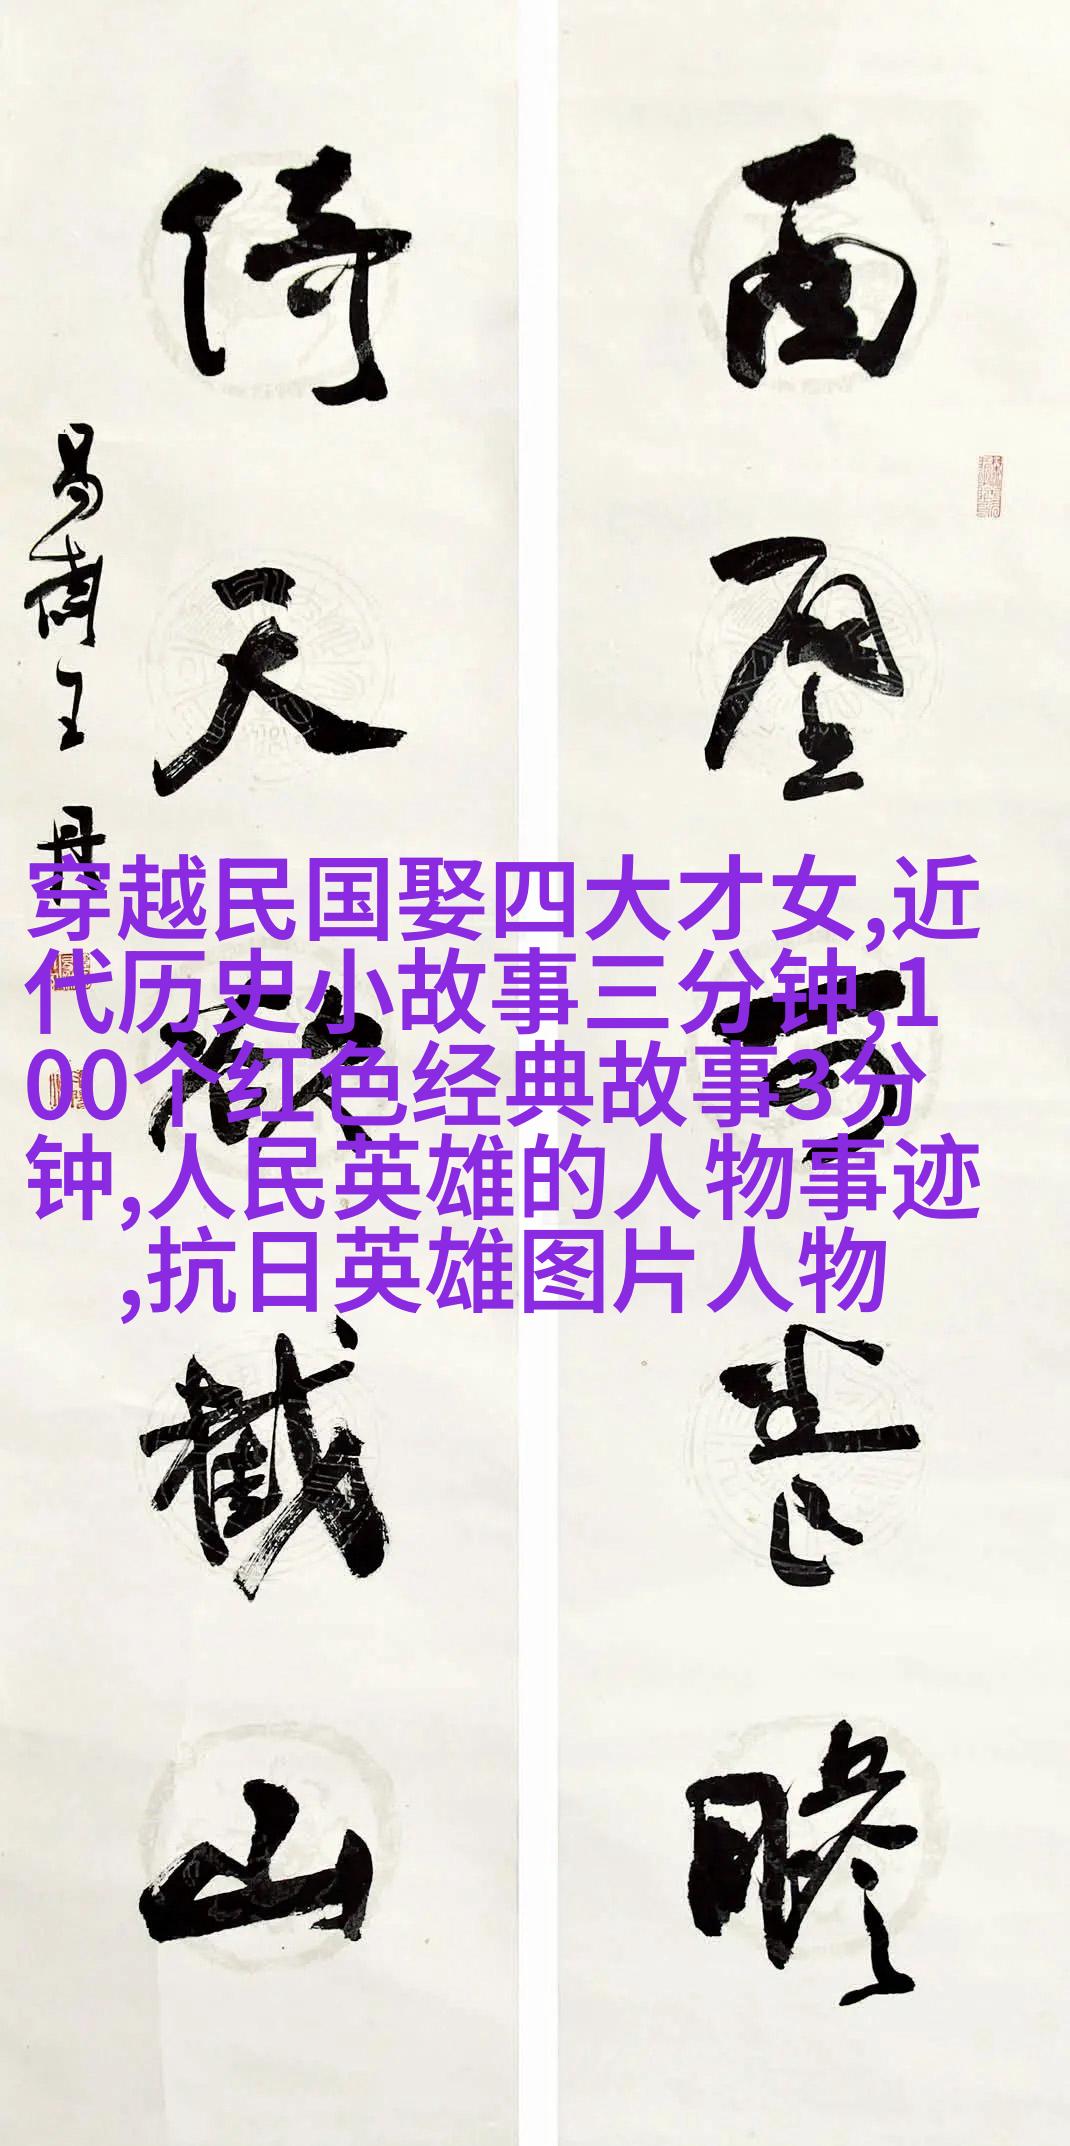 穿越民国娶四大才女,近
代历史小故事三分钟,1
00个红色经典故事3分
钟,人民英雄的人物事迹
,抗日英雄图片人物
面壁可 瞻
倚天欲截山